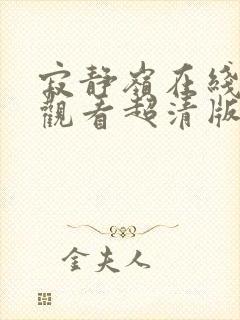 寂静嶺在綫
觀看超清版
金夫人